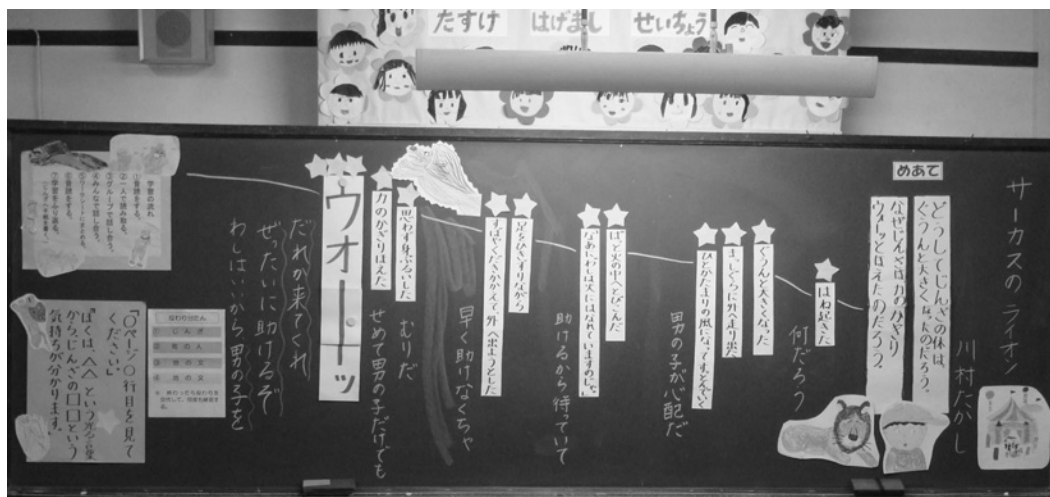 たすけ はげまし せいちょう
サーカスのライオン
川村たかし
めあて
どうしてじんざの体は、
ぐうんと大きくなったのだろう。
なぜじんざは力のかぎり
ウォーッとほえたのだろう。
はね起きた
何だろう
ぐうんと大きくなった
まっしぐらに外へ走り出た
ひとかたまりの風になって、すすんでいく
男の子が心配だ
ぱっと火の中へとびこんだ
なあに、わしは火にはなれていますのじゃ。
助けるから待っていて
足をひきずりながら
すばやくだきかかえて、外へ出ようとした
早く助けなくちゃ
思わず身ぶるいした
力のかぎりほえた
むりだ
せめて男の子だけでも
ウォーーッ
だれか来てくれ
ぜったいに助けるぞ
わしはいいから男の子を
学習の流れ
①音読をする。
②一人で読み取る。
③グループで話し合う。
④みんなで話し合う。
⑥音読をする。
⑦学習をふり返る。
じんざ
男の人
「〇ページ〇行目を見て
ください。」
ぼくは、へへという言葉
から、じんざの□□という
気持ちが分かります。」